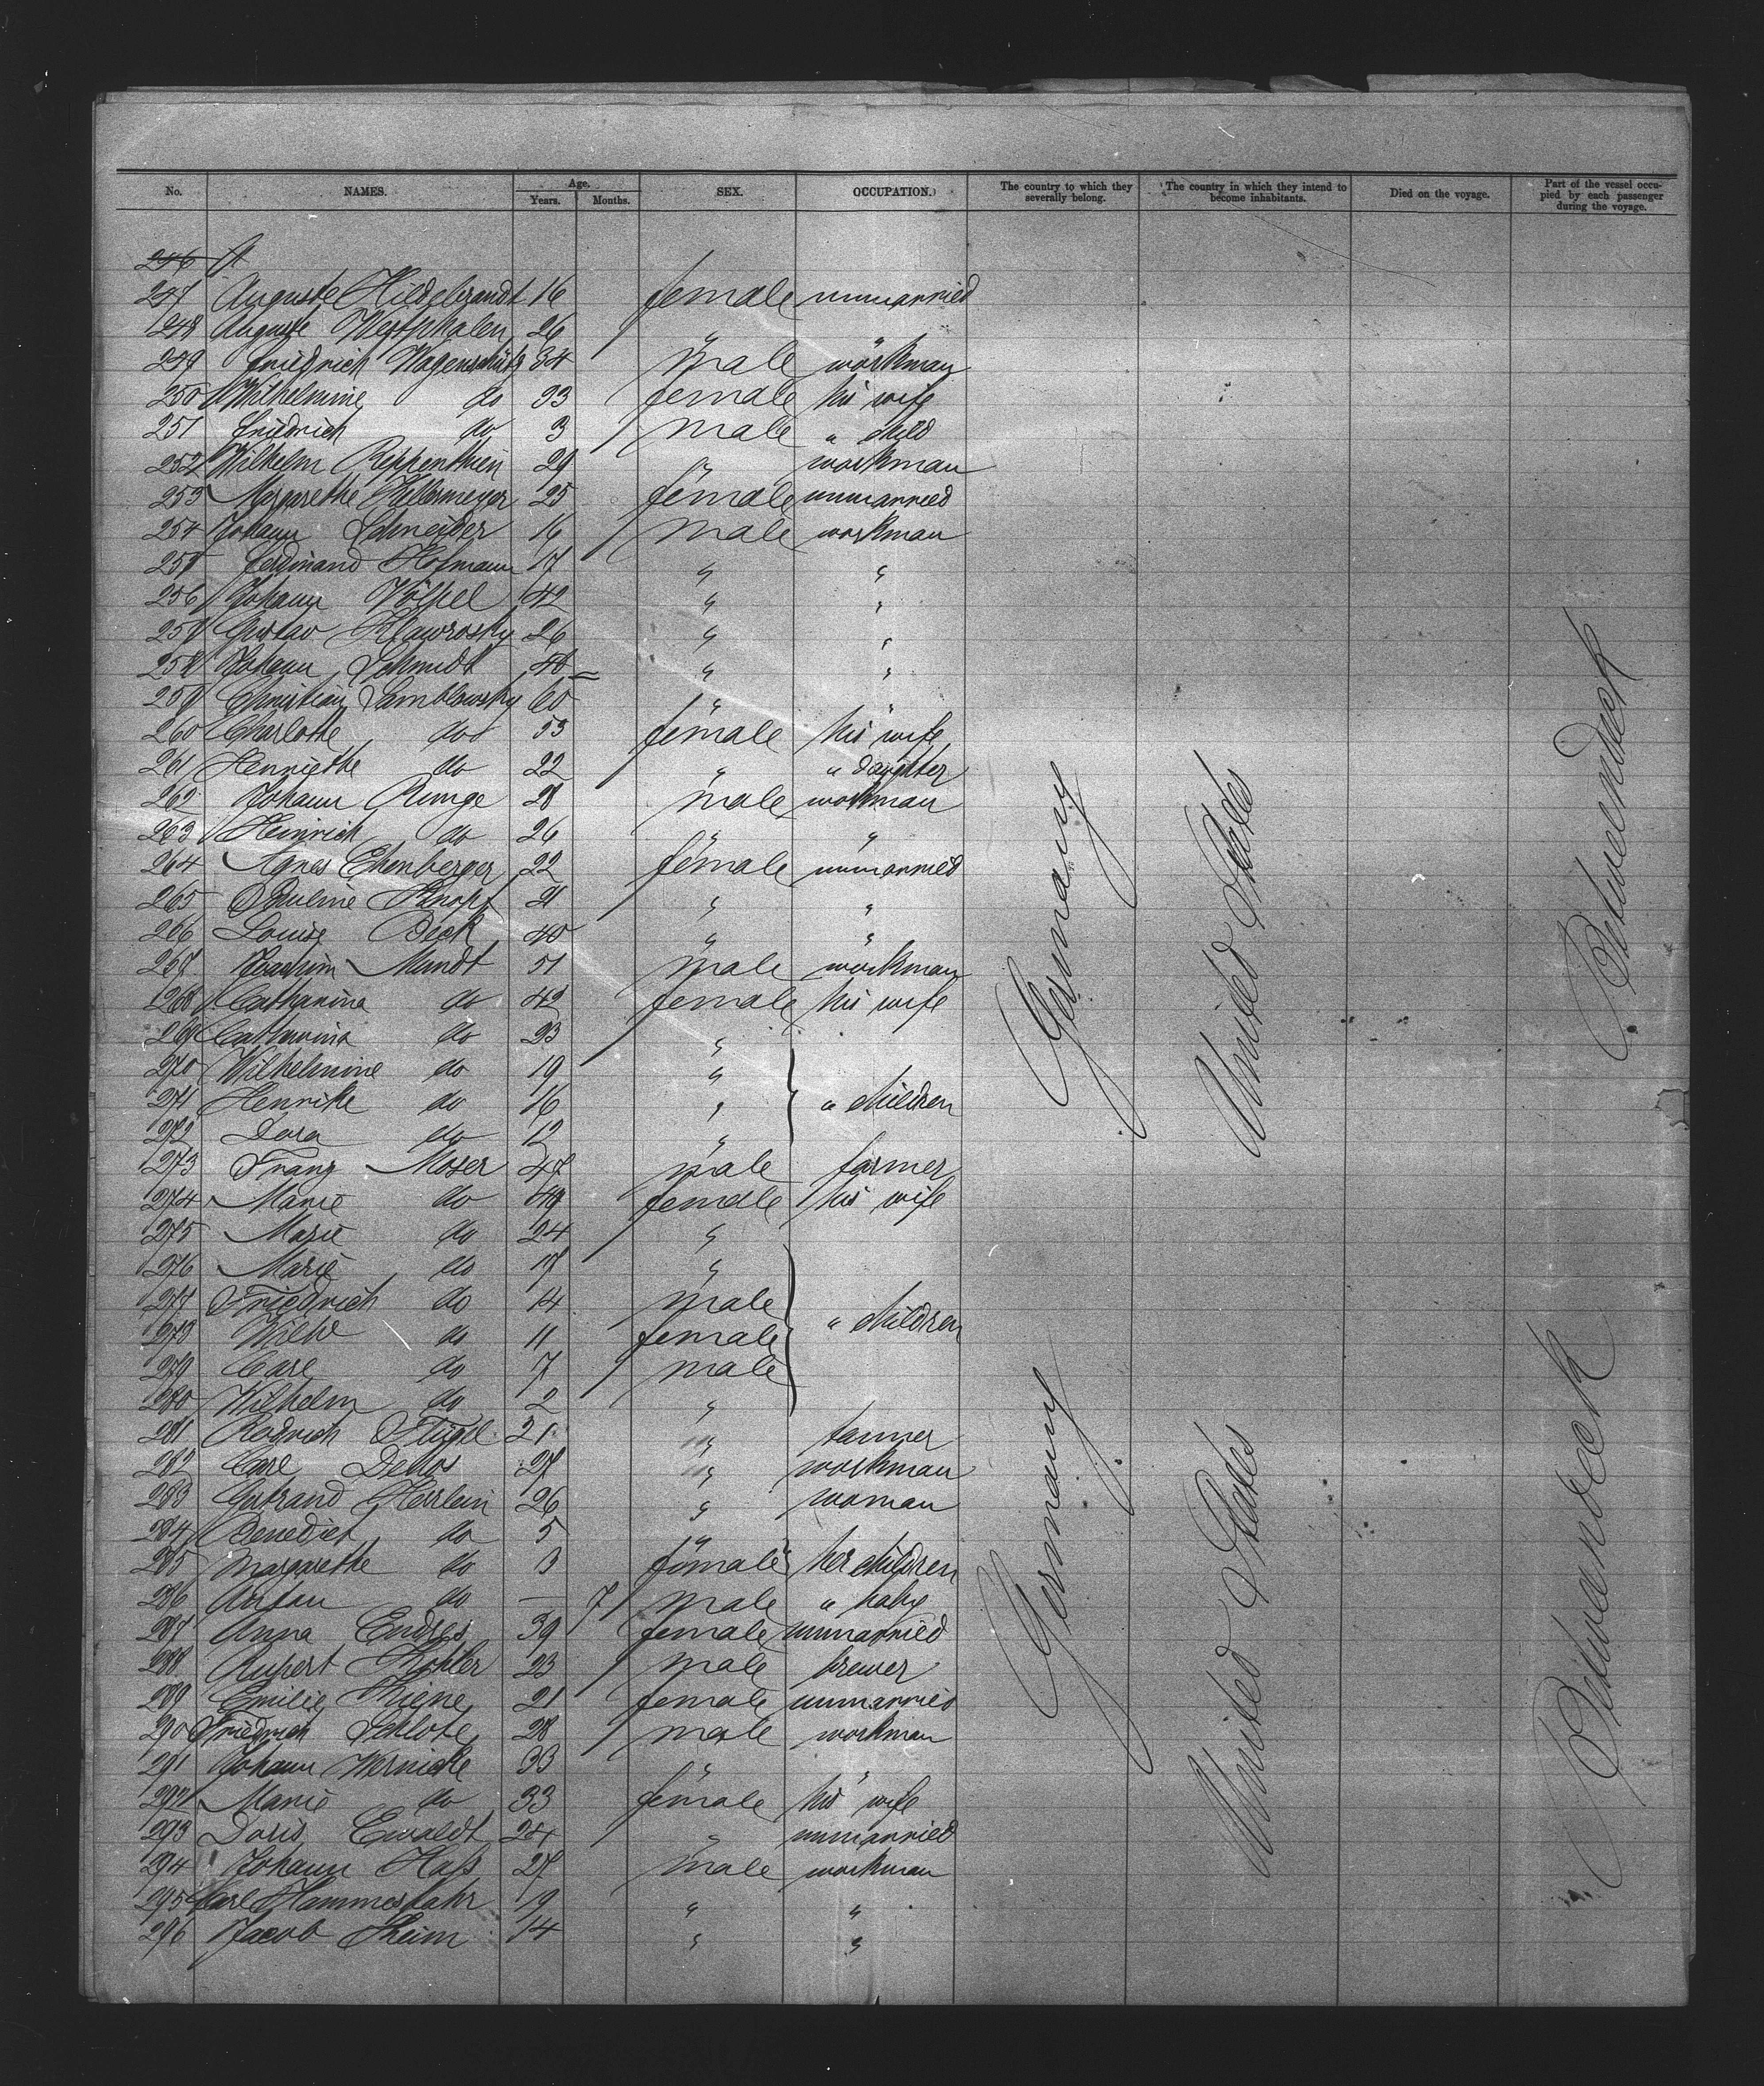 No. NAMES. Age. Years. Months. SEX. OCCUPATION. The country to which they severally belong. The country in which they intend to become inhabitants. Died on the voyage. Part of the vessel occupied by each passenger during the voyage.
246 A
247 Auguste Hildebrandt 16 female unmarried
248 Auguste Westphalen 26 " "
249 Friedrich Wagenschütz 34 male workman
250 Wilhelmine do 33 female his wife
251 Friedrich do 3 male " child
252 Wilhelm Reppenthien 29 " workman
253 Margarethe Hellermeyer 25 female unmarried
254 Johann Schneider 16 male workman
255 Ferdinand Hofmann 17 " "
256 Johann Völpel 42 " "
257 Gustav Klawrosky 26 " "
258 Johann Schmidt 48 " "
259 Christian Samblowsky 60 " "
260 Charlotte do 53 female his wife
261 Henriethe do 22 " " daughter
262 Johann Runge 28 male workman
263 Heinrich do 26 " "
264 Agnes Ehenberger 22 female unmarried
265 Pauline Knopf 21 " "
266 Louise Beck 40 " "
267 Joachim Mundt 51 male workman
268 Catharina do 42 female his wife
269 Catharina do 23 "
270 Wilhelmine do 19 "
271 Henrike do 16 " " children
272 Dora do 12 "
273 Franz Moser 47 male farmer
274 Marie do 49 female his wife
275 Marie do 24 "
276 Marie do 17 "
277 Friedrich do 14 male " children
278 do 11 female
279 Carl do 7 male
280 Wilhelm do 2 "
281 Rodrich Flügel 21 " tanner
282 Carl Devos 27 " workman
283 Gertrand Herrlein 26 " woman
284 Benedict do 5 "
285 Margarethe do 3 female her children
286 do — 7 male " baby
287 Anna Endres 39 female unmarried
288 Rupert Kohler 23 male brewer
289 Emilie Kiene 21 female unmarried
290 Friedrich Schlote 28 male workman
291 Johann Wernicke 33 " "
292 Marie do 33 female his wife
293 Doris Ewaldt 24 " unmarried
294 Johann Haß 27 male workman
295 Carl Hammesfahr 19 " "
296 Jacob Theim 14 " "
Germany
United States
Betweendeck
Germany
United States
Betweendeck